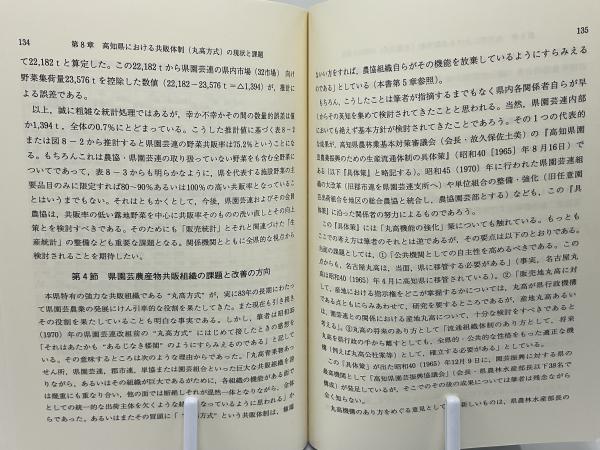 134　　第8章　高知県における共販体制（丸高方式）の現状と課題
て22,182ｔと算定した。この22,182ｔから県園芸連の県内市場（32市場）向け
野菜集荷量23,576ｔを控除した数値（22,182－23,576ｔ＝△1,394）が、推計に
よる誤差である。
以上、誠に粗雑な統計処理ではあるが、幸か不幸かその間の数量的誤差は僅
か1,394ｔ、全体の0.7％にとどまっている。こうした推計値に基づく表8－2
または図8－2から推計すると県園芸連の野菜共販率は75.2％ということにな
る。もちろんこれは農協・県園芸連の取り扱っていない野菜をも含む全野菜に
ついてであって、表8－3からも明らかなように、県を代表する施設野菜の主
要品目のみに限定すれば80～90％あるいは100％の高い共販率となっているこ
とはいうまでもない。それはともかくとして、今後、県園芸連およびその会員
農協は、共販率の低い露地野菜を中心に共販率そのものの洗い直しとその向上
策とを検討すべきである。そのためにも「販売統計」とそれと関連づけた「生
産統計」の整備なども重要な課題となる。関係機関とともに全県的な視点から
検討されることを期待したい。
第4節　県園芸農産物共販組織の課題と改善の方向
本県特有の強力な共販組織である“丸高方式”が、実に83年の長期にわたっ
て県園芸農業の発展にけん引車的な役割を果たしてきた。また現在も引き続き
その役割を果たしていることも明白な事実である。しかし、筆者は昭和45
（1970）年の県園芸連改組前の“丸高方式”にはじめて接したときの感想を
「それはあたかも“あるじなき楼閣”のようにすらみえるのである」と記して
いる。その意味するところは次のような理由からであった。「丸高青果物あっ
せん所、県園芸連、郡市連、単協または園芸組合といった巨大な共販組織を誇
りながら、あるいはその組織が巨大であるがために、各組織の機能がある面で
は幾重にも重なり合い、他の面では断絶しそれが混然一体となりながら、全体
としての統一的な出荷主体を欠くような結果となっているように思われる」か
らであった。あるいはまたその冒頭に「“丸高方式”という共販体制は、極端
135
ない方をすれば、農協組織自らがその機能を放棄しているようにすらみえる
のである」としている（本書第5章参照）。
もちろん、こうしたことは筆者が指摘するまでもなく県内各関係者自らが早
くからその英知を集めて検討されてきたことと思われる。当然、県園芸連内部
においても絶えず基本方針が検討されてきたことであろう。その1つの代表的
な成果が、高知県農林業基本対策審議会（会長・故久保佐土美）の『高知県園
芸農業振興のための生産流通体制の具体策』（昭和40［1965］年8月16日）で
ある（以下『具体策』と略記する）。昭和45（1970）年に行われた県園芸連組
織の大改革（旧郡市連を県園芸連支所へ）や単位組合の整備・強化（旧任意園
芸出荷組合を地区の総合農協と統合し、農協園芸部とする）なども、この『具
体策』に沿った関係者の努力によるものであろう。
この『具体策』には「丸高機能の強化」策についても触れている。もっとも
ここでの考え方は筆者のそれとは逆であるが、その要点は以下のとおりである。
当面の課題としては、①「公共機関としての自主性を高めるべきである。この
点からも、名古屋丸高は、当面、県に移管する必要がある」（事実、名古屋丸
高は昭和40［1965］年4月に高知県に移管されている）。②「販売地丸高に対
して、産地における指示権をどこが掌握するかについては、丸高が県行政機関
である点ともにらみあわせて、研究を要するところであるが、産地丸高あるい
は、県園芸連との関係における産地丸高について、十分な検討をすべきであると
考える」。③丸高の将来のあり方として「流通組織体制のあり方として、将来
丸高を県行政の手から離すとしても、全県的・公共的な性格をもった適正な機
構（例えば丸高公社案等）として、確立する必要がある」としている。
この『具体策』が出た昭和40（1965）年12月9日に、園芸振興に対する県の
最高機関として「高知県園芸振興協議会」（会長・県農林水産部長以下38名で
構成）が発足しているが、そこでのその後の成果については筆者は残念ながら
全く知らない。
丸高機構のあり方をめぐる意見としてもっとも新しいものは、県農林水産部長の